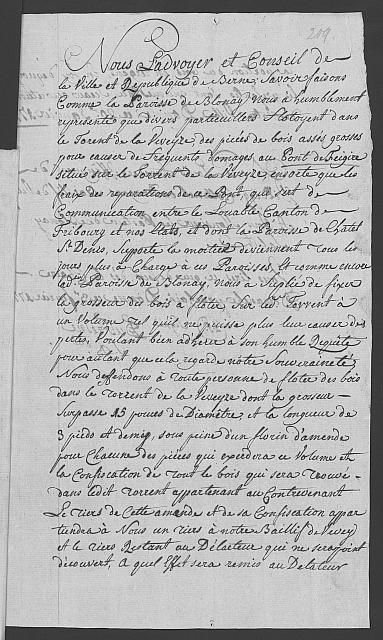 219.
Nous Ladvoyer et Conseil de
la Ville et Republique de Berne, Savoir faisons
Comme la Paroisse de Blonay Nous à humblement
représenté que divers particulliers flotoyent dans
le Torent de la Veveyse, des pièces de bois assés grosses
pour causer de fréquents domages, au Pont de Fégire
Situé sur le Torrent de la Veveyse ensorte que les
fraix des reparations de ce Pont, qui sert de
Communication entre le Louable Canton de
Fribourg et nos Etats, et dont la Paroisse de Chatel
St. Denis, Suporte la moitié deviennent Tous les
jours plus à Charge à ces Paroisses, Et comme encore
lade. Paroisse de Blonay, Nous à Suplié de fixer
la grosseur des bois à floter sur led. Torrent à
un Volume tel quil ne puisse plus leur causer des
pertes, Voulant bien adhérer à son humble Requête
pour autant que cela regarde notre Souveraineté,
Nous deffendons à toute personne de floter des bois
dans le Torrent de la Veveyse dont la grosseur
Surpasse 15 pouces de Diamètre, et la longueur de
3 pieds et demy, sous peine d'un florin d'amende
pour Chacune des pièces qui excédera ce Volume et
la Confiscation de tout le bois qui sera trouvé
dans ledit Torrent appartenant au Contrevenant
Le tiers de Cette amende et de sa Confiscation appar
tiendra à Nous un tiers à nôtre Baillif de Vevey
Et le tiers Restant au Délateur qui ne sera point
découvert, à quel Effet sera remis au Delateur